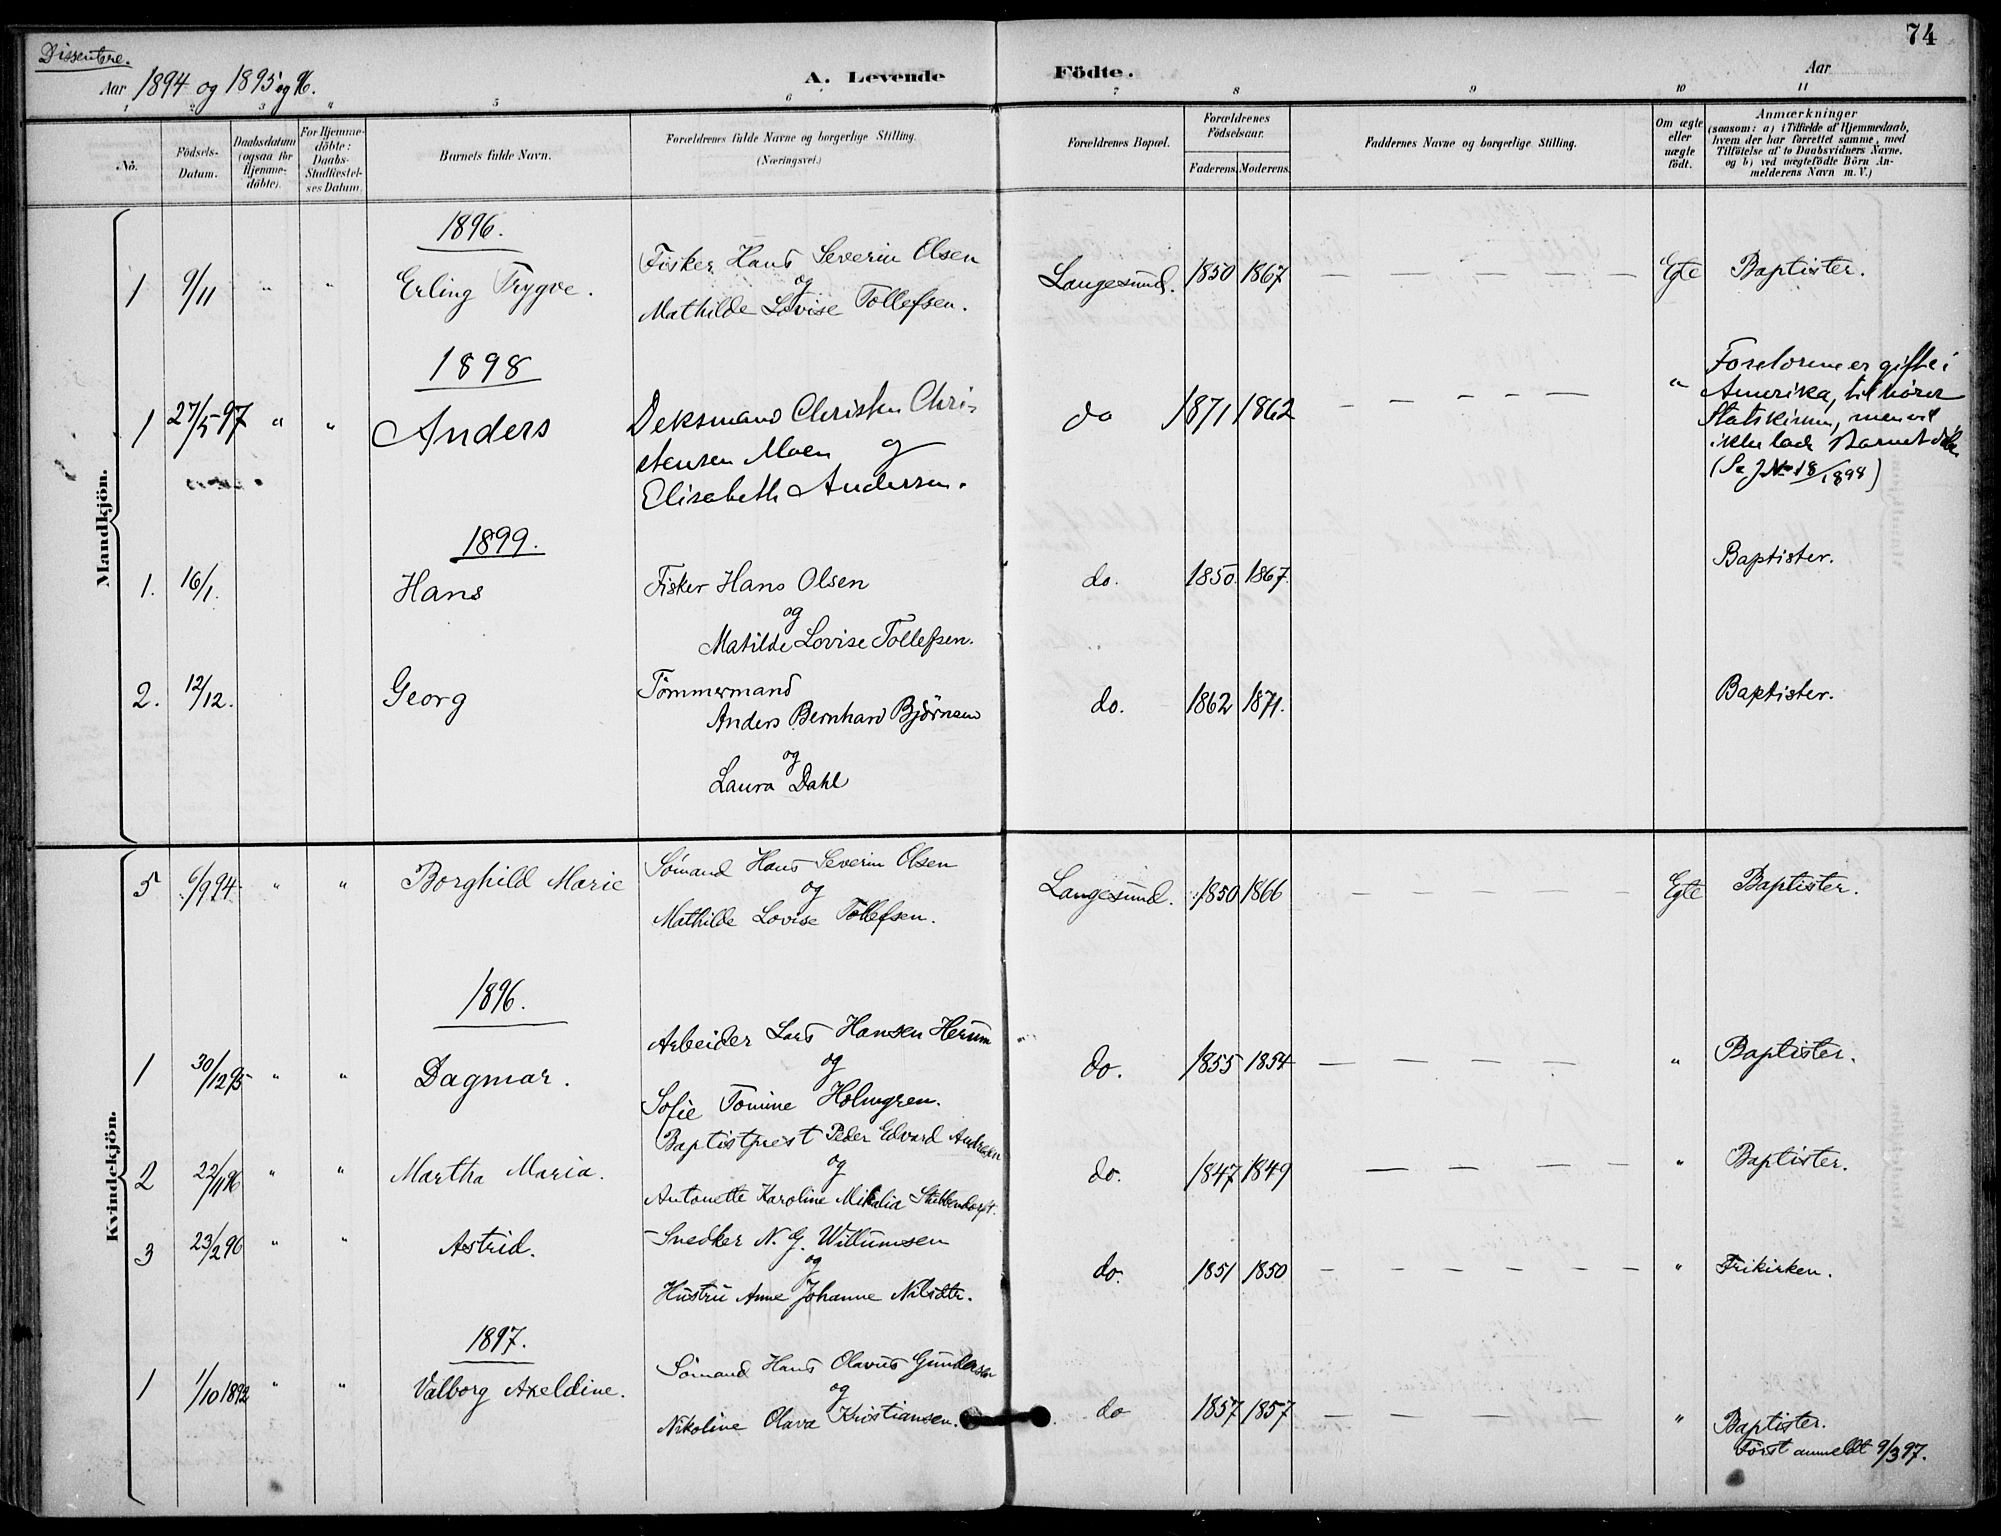 74
Dissentere.
Aar 1894 og 1895 og 96.
A. Levende Födte.
Aar
1 2 3 " 5 6 7 8 9 10 11
No.
Födsels-
Datum.
Daabsdatum
(ogsaa for
Hjemme-
döbte).
For Hjemme-
döbte:
Daabs-
Stadfæstel-
ses Datum.
Barnets fulde Navn.
Forældrenes fulde Navne og borgerlige Stilling.
(Næringsvei.)
Forældrenes Bopæl.
Forældrenes
Födselsaar.
Faderens. Moderens.
Faddernes Navne og borgerlige Stilling.
Om ægte
eller
uægte
födt.
Anmærkninger
(saasom: a) i Tilfælde af Hjemmedaab,
hvem der har forrettet samme, med
Tilföielse af to Daabsvidners Navne,
og b) ved uægtefödte Börn An-
melderens Navn m. V.)
Mandkjön.
1896.
1 9/11 " " Erling Trygve. Fisker Hans Severin Olsen
og
Mathilde Lovise Tollefsen.
Langesund. 1850 1867 — — — — — Egte Baptister.
1898
1 27/5 97 " " Anders Deksmand Christen Chri-
stensen Moen og
Elisabeth Andersen.
do 1871 1862 — — — — — " Forældrene er gifte i
Amerika, tilhører
Statskirken, men vil
ikke lade Barnet døbe
(Se J No 18/1898)
1899.
1. 16/1. Hans Fisker Hans Olsen
og
Matilde Lovise Tollefsen.
do. 1850. 1867. Baptister.
2. 12/12. Georg Tömmermand
Anders Bernhard Björnsen
og
Laura Dahl
do. 1862 1871. Baptister.
Kvindekjön.
5 6/9 94 " " Borghild Marie Sömand Hans Severin Olsen
og
Mathilde Lovise Tollefsen.
Langesund. 1850 1866 — — — — — Egte Baptister.
1896.
1 30/12 95 " " Dagmar. Arbeider Lars Hansen Herum
og
Sofie Tomine Holmgren.
do. 1855 1854 — — — — — " Baptister.
2 22/1 96 " " Martha Maria. Baptistprest Peder Edvard Andresen
og
Antonette Karoline Mikalia
do. 1847 1849 — — — — — " Baptister.
3 23/2 96 " " Astrid. Snedker N. G. Willumsen
og
Hustru Anne Johanne Nilsdtr.
do. 1851 1850 — — — — — " Frikirken.
1897.
1 1/10 1892 " " Valborg Axeldine. Sömand Hans Olavus Gundersen
og
Nikoline Olava Kristiansen.
do 1857 1857 — — — — — " Baptister.
Först anmeldt 9/3 97.